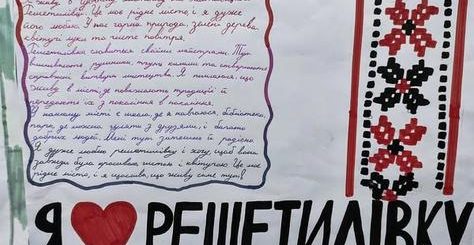 Решетилівці. Це моє рідне місто, і я дуже
його люблю. У нас гарна природа, зелені дерева,
квітучі луки та чисте повітря.
Решетилівка славиться своїми майстрами. Тут
вишивають рушники, тчуть килими та створюють
справжні витвори мистецтва. Я пишаюся, що
живу в місті, де поважають традиції й
передають їх з покоління в покоління.
У нашому місті є школа, де я навчаюся, бібліотека,
парк, де можна гуляти з друзями, і багато
добрих людей. Мені тут затишно й радісно.
Я дуже люблю Решетилівку і хочу, щоб вона
завжди була красивою, чистою і квітучою. Це моє
рідне місто, і я щаслива, що живу саме тут!
Я РЕШЕТИЛІВКУ